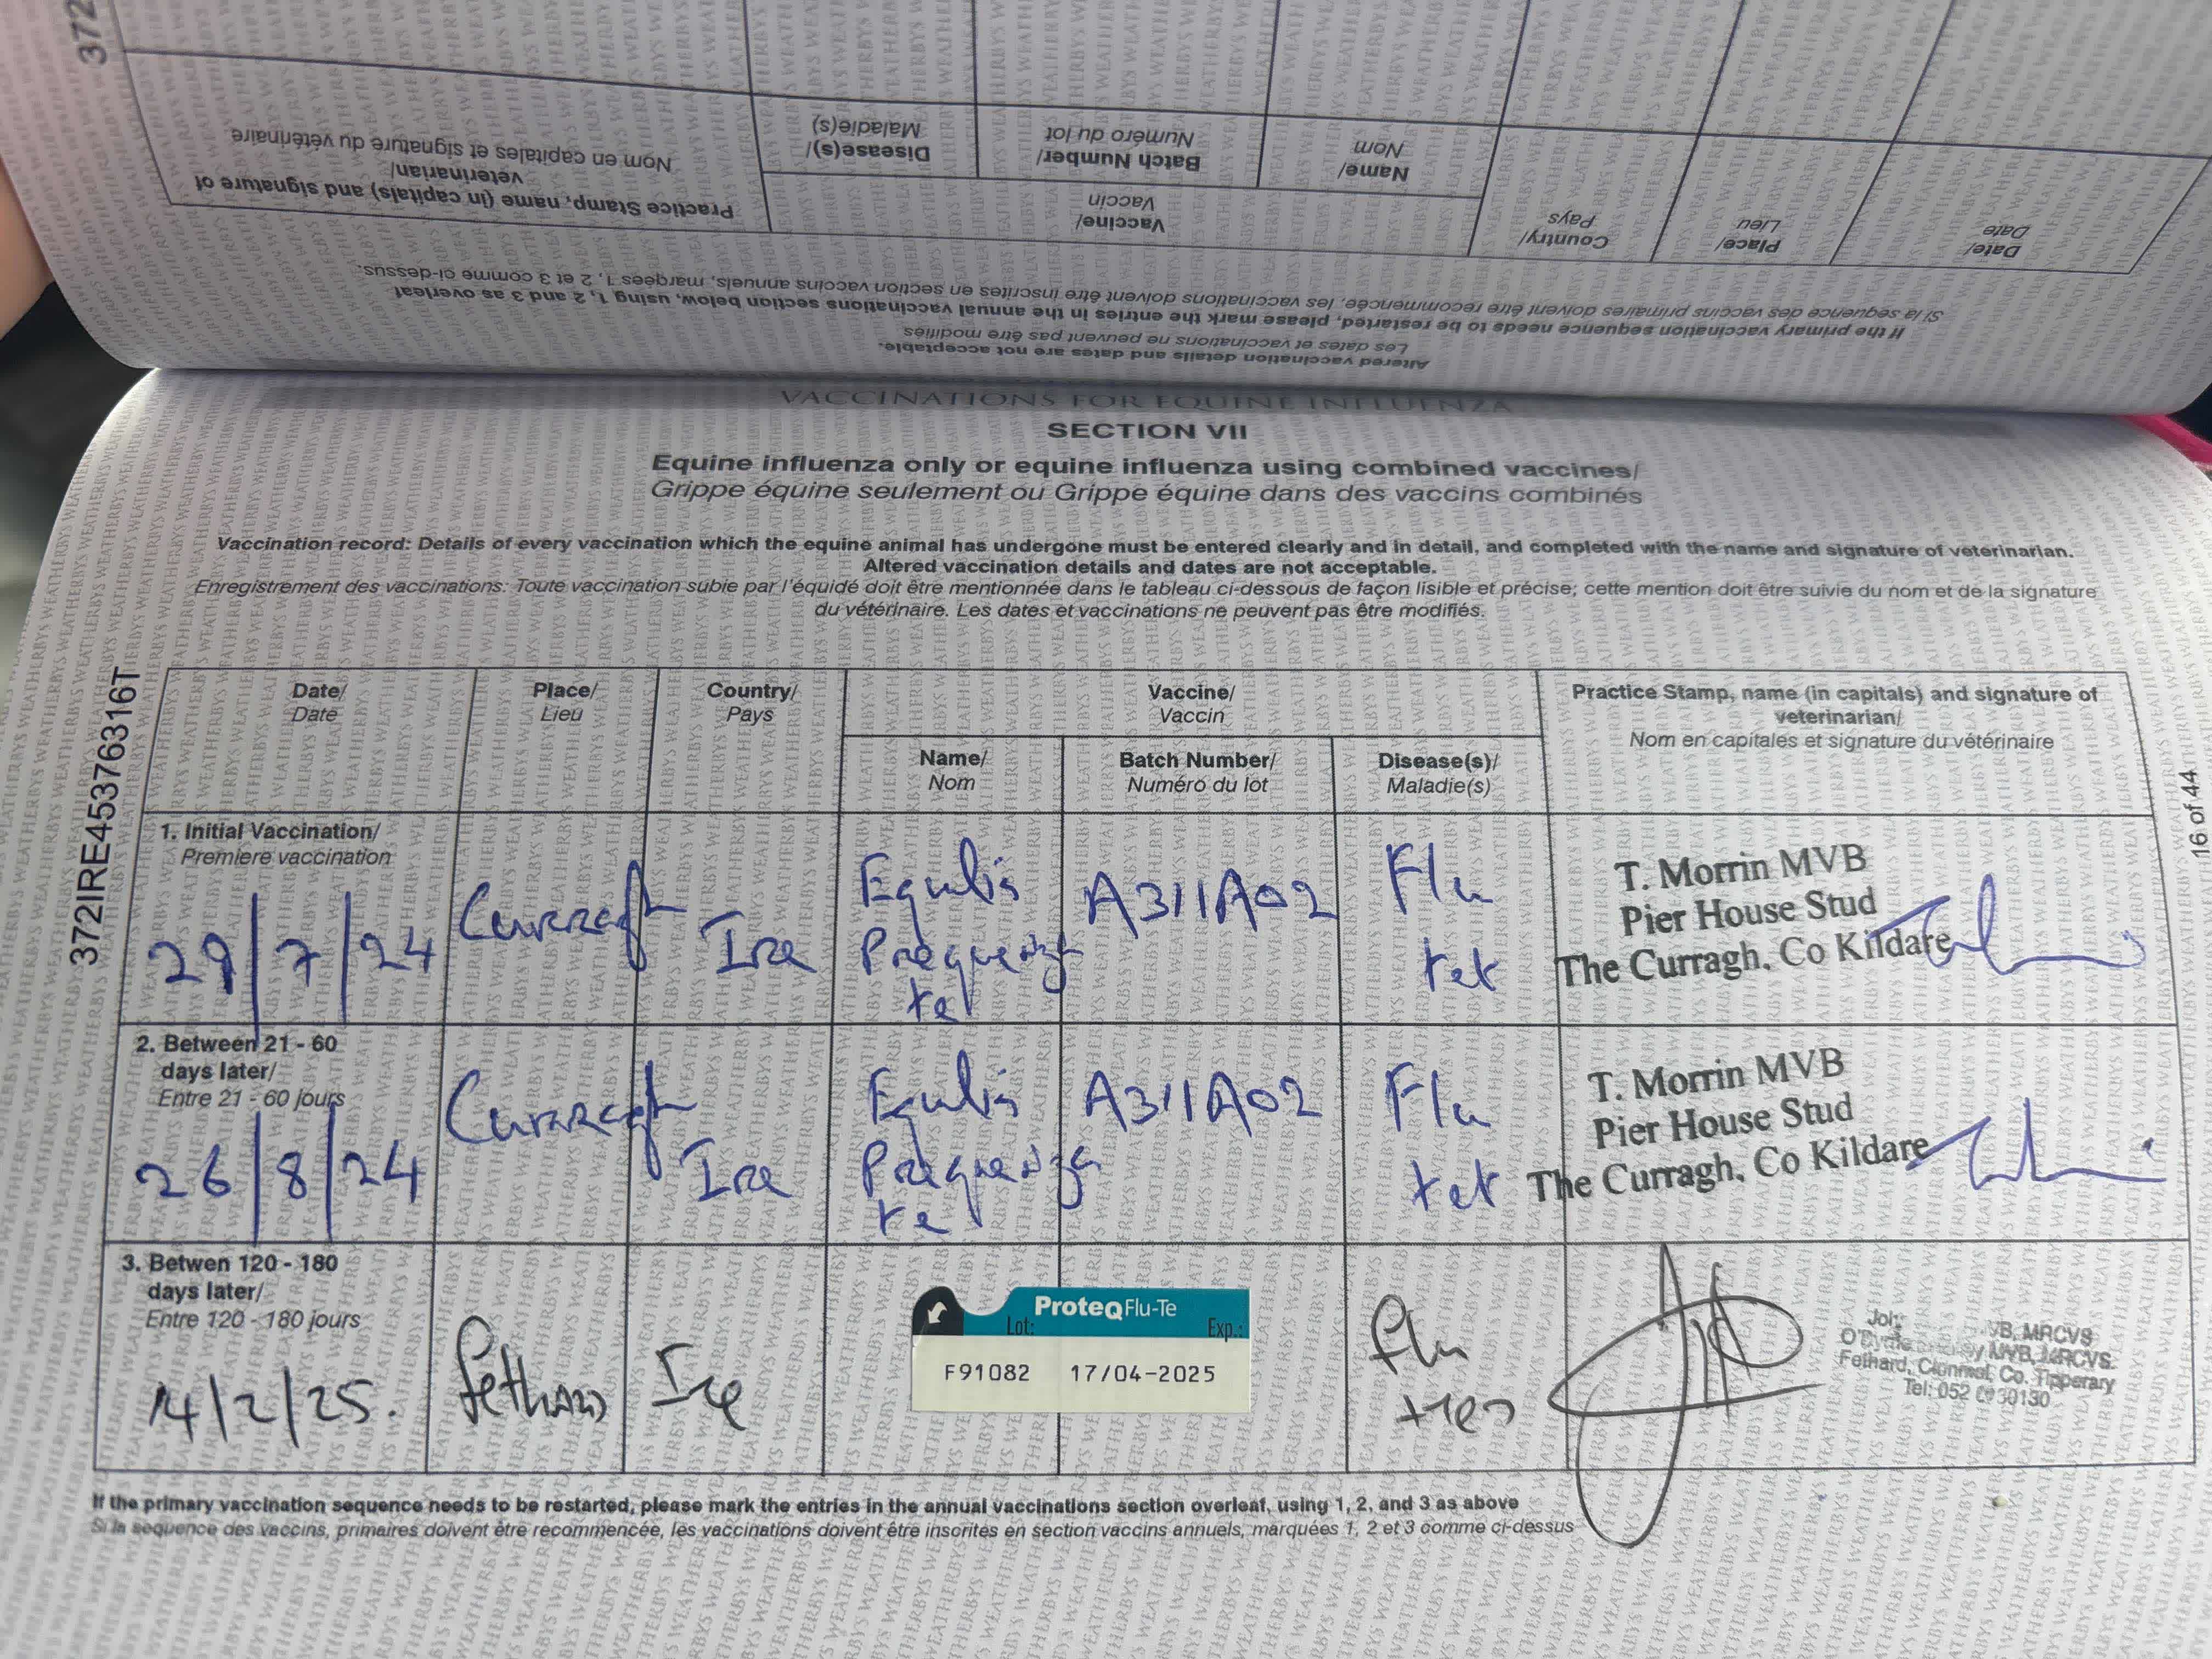 372
Date/
Date
Place/
Lieu
Country/
Pays
Vaccine/
Vaccin
Name/
Nom
Batch Number/
Numéro du lot
Disease(s)/
Maladie(s)
Practice Stamp, name (in capitals) and signature of
veterinarian/
Nom en capitales et signature du vétérinaire
If the primary vaccination sequence needs to be restarted, please mark the entries in the annual vaccinations section below, using 1, 2 and 3 as overleaf
Si la séquence des vaccins primaires doivent être recommencée, les vaccinations doivent être inscrites en section vaccins annuels, marquées 1, 2 et 3 comme ci-dessus.
Altered vaccination details and dates are not acceptable.
Les dates et vaccinations ne peuvent pas être modifiés
VACCINATIONS FOR EQUINE INFLUENZA
SECTION VII
Equine influenza only or equine influenza using combined vaccines/
Grippe équine seulement ou Grippe équine dans des vaccins combinés
Vaccination record: Details of every vaccination which the equine animal has undergone must be entered clearly and in detail, and completed with the name and signature of veterinarian.
Altered vaccination details and dates are not acceptable.
Enregistrement des vaccinations: Toute vaccination subie par l'équidé doit être mentionnée dans le tableau ci-dessous de façon lisible et précise; cette mention doit être suivie du nom et de la signature
du vétérinaire. Les dates et vaccinations ne peuvent pas être modifiés.
372IRE45376316T
16 of 44
Date/
Date
Place/
Lieu
Country/
Pays
Vaccine/
Vaccin
Name/
Nom
Batch Number/
Numéro du lot
Disease(s)/
Maladie(s)
Practice Stamp, name (in capitals) and signature of
veterinarian/
Nom en capitales et signature du vétérinaire
1. Initial Vaccination/
Premiere vaccination
29/7/24
Curragh
Ire
Equilis
Prequenza
te
A311A02
Flu
tet
T. Morrin MVB
Pier House Stud
The Curragh, Co Kildare
2. Between 21 - 60
days later/
Entre 21 - 60 jours
26/8/24
Curragh
Ire
Equilis
Prequenza
te
A311A02
Flu
tet
T. Morrin MVB
Pier House Stud
The Curragh, Co Kildare
3. Betwen 120 - 180
days later/
Entre 120 - 180 jours
14/2/25.
Ire
ProteqFlu-Te
Lot: Exp.:
F91082 17/04-2025
Flu
MVB, MRCVS
MVB, MRCVS.
Fethard, Clonmel, Co. Tipperary
Tel: 052
If the primary vaccination sequence needs to be restarted, please mark the entries in the annual vaccinations section overleaf, using 1, 2, and 3 as above
Si la sequence des vaccins, primaires doivent être recommencée, les vaccinations doivent être inscrites en section vaccins annuels, marquées 1, 2 et 3 comme ci-dessus